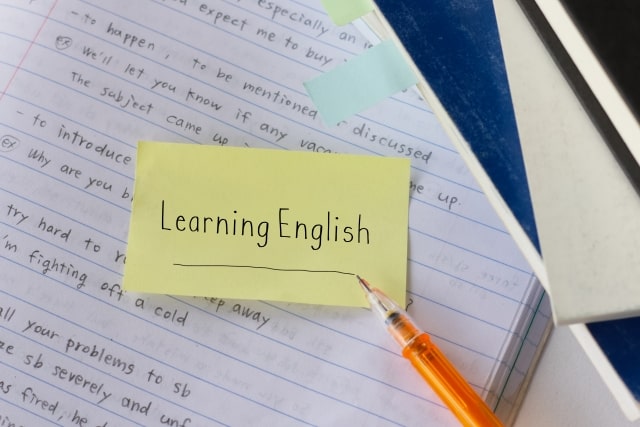 especially an
you expect me to buy
- to happen, to be mentioned, discussed
ex We'll let you know if any vaca
The subject came up
me up.
- to introduce
ex Why are you b
Learning English
try hard to r
'm fighting off a cold
ep away
all your problems to sb
ze sb severely and unf
as fired, he d